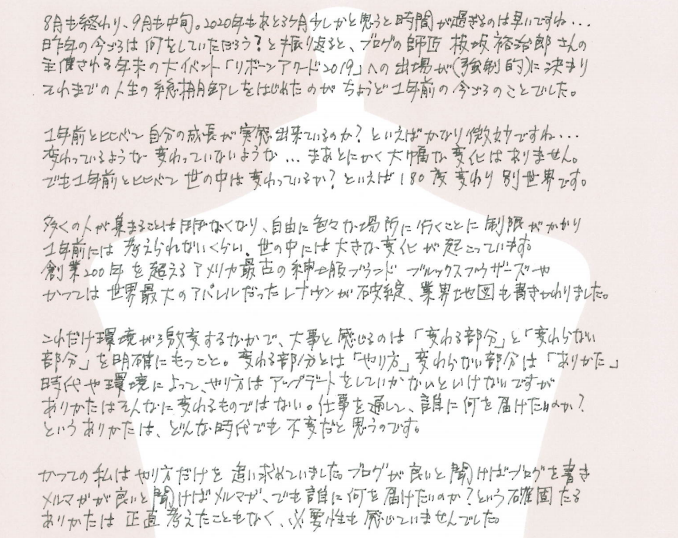 8月も終わり、9月も中旬。2020年もあと3ヶ月少しかと思うと時間が過ぎるのは早いですね…
昨年の今ごろは何をしていただろう?と振り返ると、ブログの師匠 板坂裕治郎さんの
主催される年末の大イベント「リボーンアワード2019」への出場が(強制的)に決まり
それまでの人生の総棚卸しをはじめたのがちょうど1年前の今ごろのことでした。
1年前と比べて自分の成長が実感出来ているのか?といえばかなり微妙ですね…
変わっているような変わっていないような…まあとにかく大幅な変化はありません。
でも1年前と比べて世の中は変わっているか?といえば180度変わり別世界です。
多くの人が集まることはほぼなくなり、自由に色々な場所に行くことに制限がかかり
1年前には考えられないくらい、世の中には大きな変化が起こっています。
創業200年を超えるアメリカ最古の紳士服ブランド ブルックスブラザーズや
かつては世界最大のアパレルだったレナウンが破綻、業界地図も書きかわりました。
これだけ環境が激変するなかで、大事と感じるのは「変わる部分」と「変わらない
部分」を明確にもつこと。変わる部分とは「やり方」変わらない部分は「ありかた」
時代や環境によって、やり方はアップデートをしていかないといけないですが
ありかたはそんなに変わるものではない。仕事を通して、誰に何を届けたいのか?
というありかたは、どんな時代でも不変だと思うのです。
かつての私はやり方だけを追い求めていました。ブログが良いと聞けばブログを書き
メルマガが良いと聞けばメルマガ、でも誰に何を届けたいのか?という確固たる
ありかたは正直考えたこともなく、必要性も感じていませんでした。